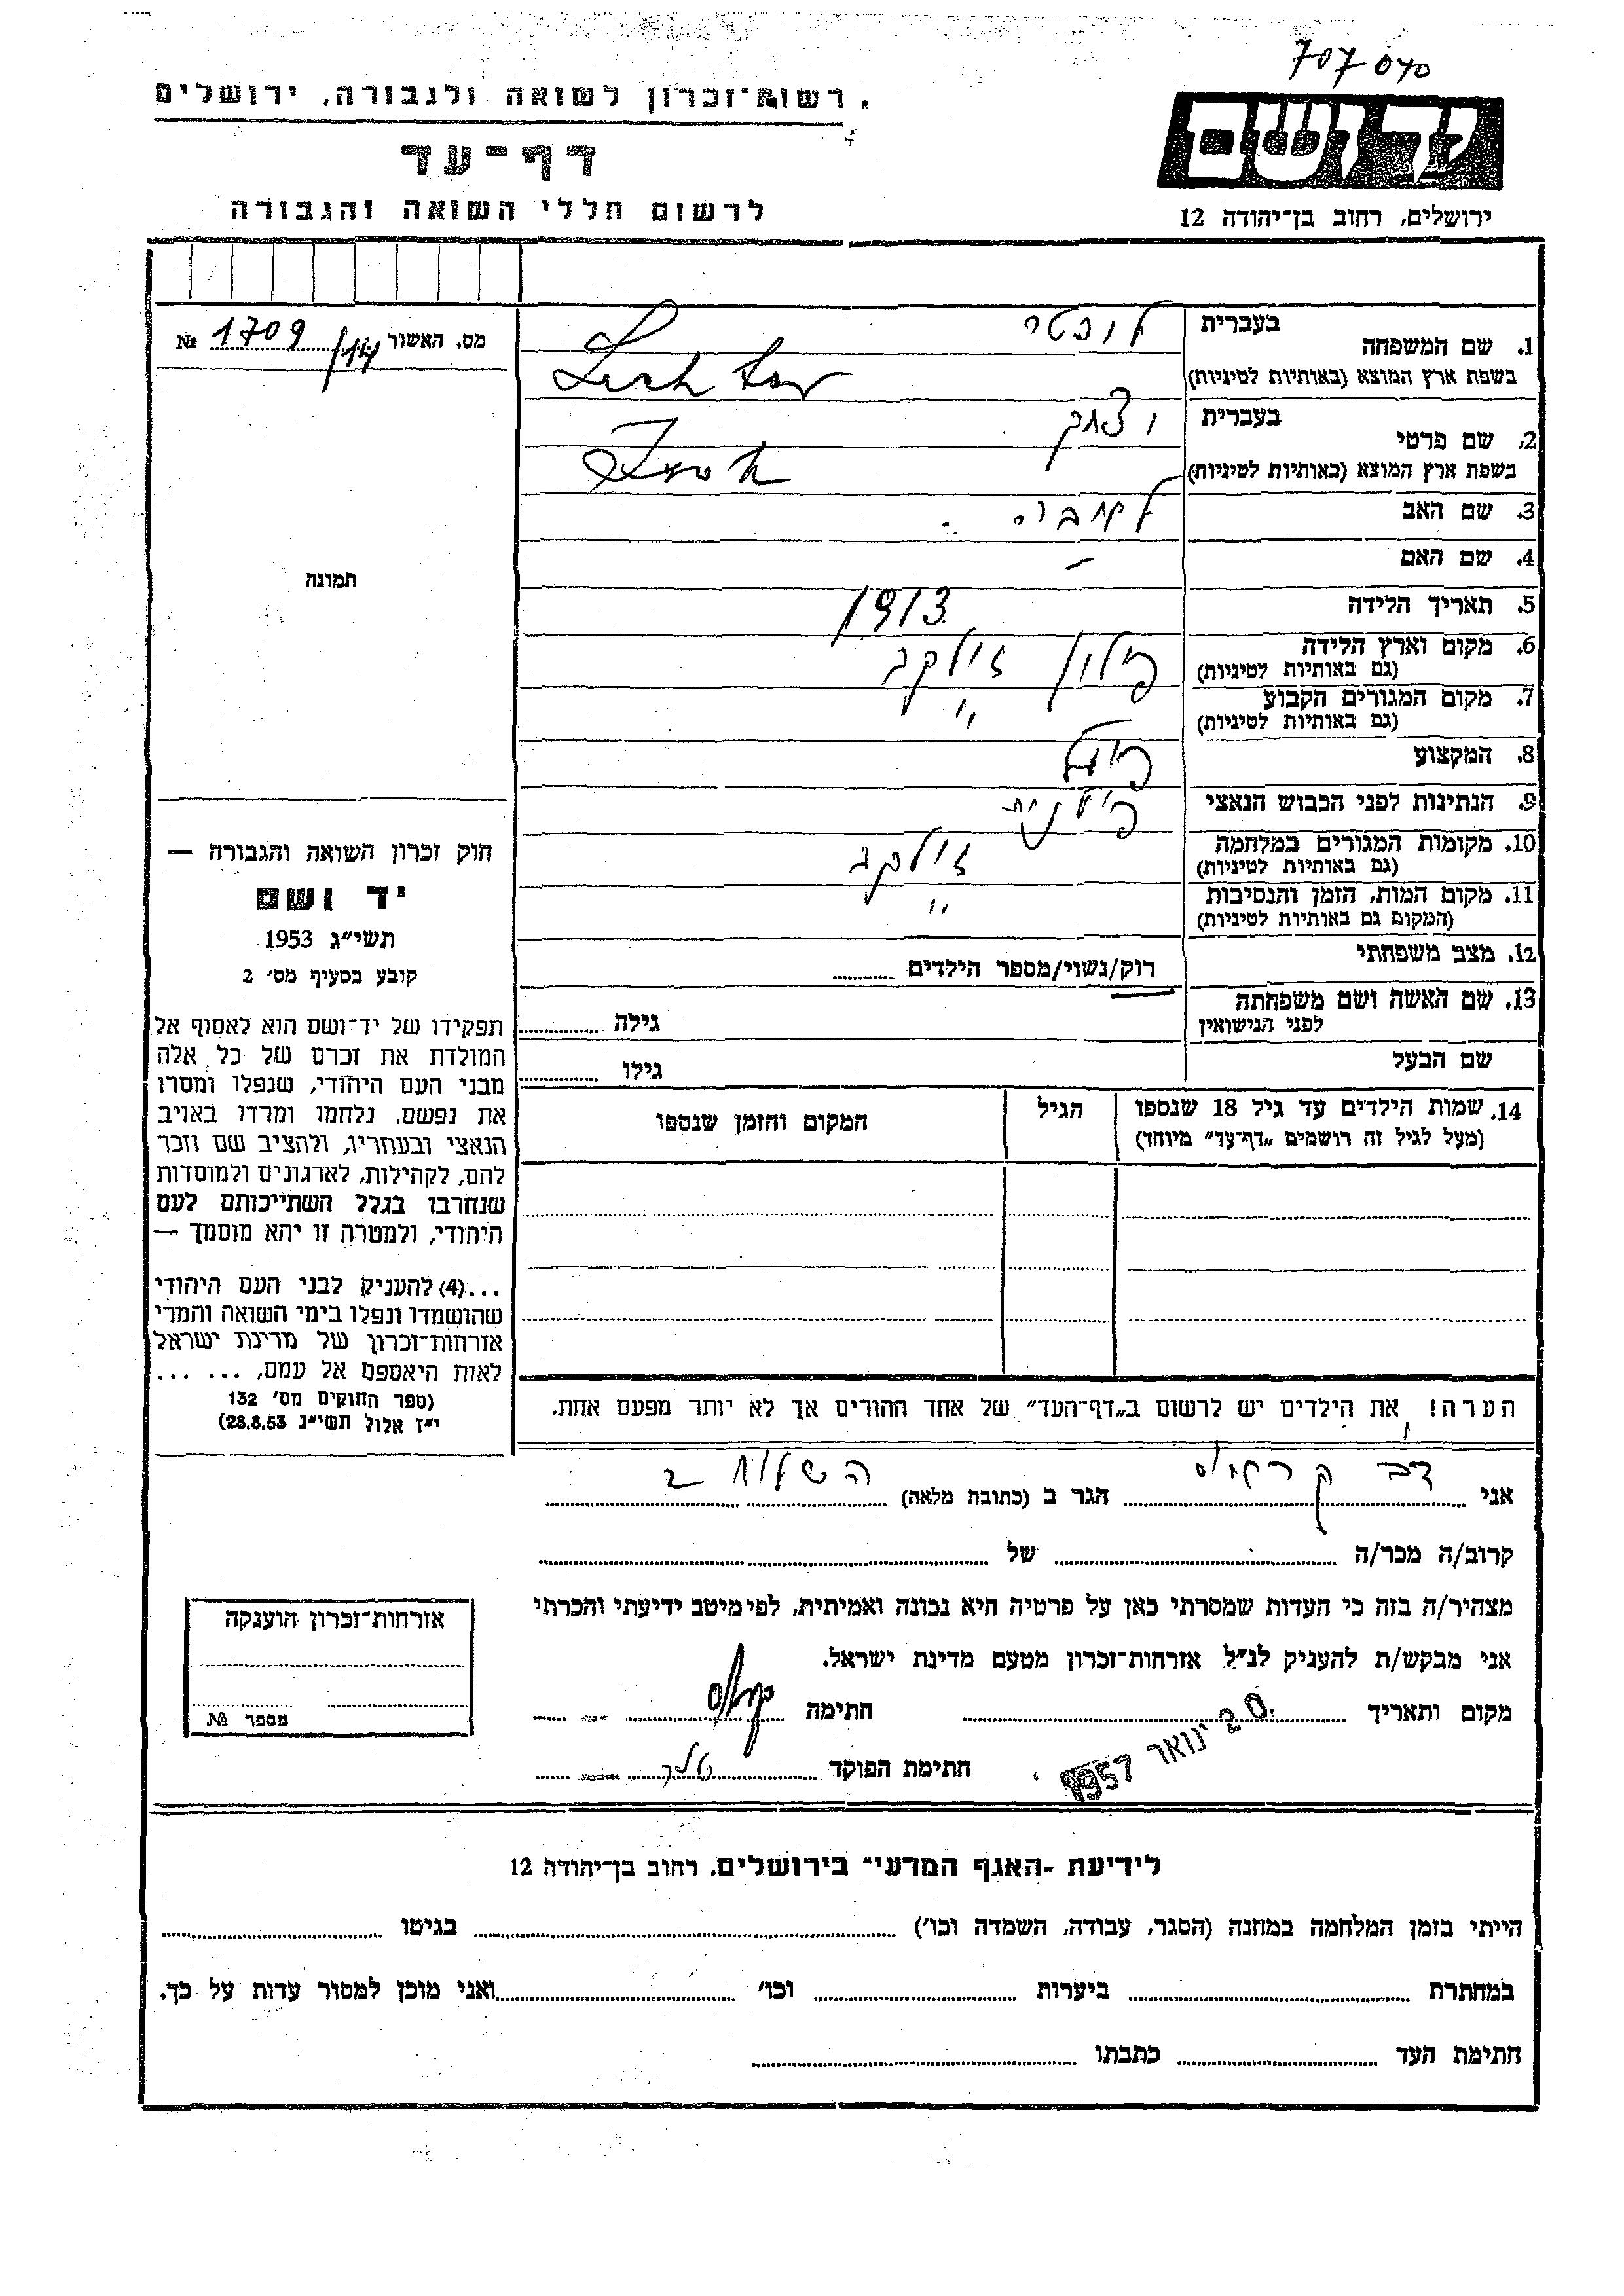 707 070
רשות־זכרון לשואה ולגבורה, ירושלים
דף־עד
לרשום חללי השואה והגבורה
יד ושם
ירושלים, רחוב בן־יהודה 12
מס. האשור 1709/14 №
תמונה
חוק זכרון השואה והגבורה —
יד ושם
תשי״ג 1953
קובע בסעיף מס׳ 2
תפקידו של יד־ושם הוא לאסוף אל
המולדת את זכרם של כל אלה
מבני העם היהודי, שנפלו ומסרו
את נפשם, נלחמו ומרדו באויב
הנאצי ובעוזריו, ולהציב שם וזכר
להם, לקהילות, לארגונים ולמוסדות
שנחרבו בגלל השתייכותם לעם
היהודי, ולמטרה זו יהא מוסמך —
...(4) להעניק לבני העם היהודי
שהושמדו ונפלו בימי השואה והמרי
אזרחות־זכרון של מדינת ישראל
לאות היאספם אל עמם, ... ...
(ספר החוקים מס׳ 132
י״ז אלול תשי״ג 28.8.53)
בעברית
1. שם המשפחה
בשפת ארץ המוצא (באותיות לטיניות)
בעברית
2. שם פרטי יצחק
בשפת ארץ המוצא (באותיות לטיניות)
3. שם האב
4. שם האם –
5. תאריך הלידה 1913
6. מקום וארץ הלידה פולין זולקב
(גם באותיות לטיניות)
7. מקום המגורים הקבוע ״
(גם באותיות לטיניות)
8. המקצוע
9. הנתינות לפני הכבוש הנאצי
10. מקומות המגורים במלחמה זולקב
(גם באותיות לטיניות)
11. מקום המות, הזמן והנסיבות ״
(המקום גם באותיות לטיניות)
12. מצב משפחתי רוק/נשוי/מספר הילדים
13. שם האשה ושם משפחתה גילה
לפני הנישואין
שם הבעל גילו
14. שמות הילדים עד גיל 18 שנספו הגיל המקום והזמן שנספו
(מעל לגיל זה רושמים „דף־עד״ מיוחד)
הערה! את הילדים יש לרשום ב„דף־העד״ של אחד ההורים אך לא יותר מפעם אחת.
אני דב הגר ב (כתובת מלאה) השלוח 2
קרוב/ה מכר/ה של
מצהיר/ה בזה כי העדות שמסרתי כאן על פרטיה היא נכונה ואמיתית, לפי מיטב ידיעתי והכרתי
אני מבקש/ת להעניק לנ״ל אזרחות־זכרון מטעם מדינת ישראל.
מקום ותאריך 20 ינואר 1957 חתימה
חתימת הפוקד
אזרחות־זכרון הוענקה
מספר №
לידיעת ־האגף המדעי־ בירושלים, רחוב בן־יהודה 12
הייתי בזמן המלחמה במחנה (הסגר, עבודה, השמדה וכו׳) בגיטו
במחתרת ביערות וכו׳ ואני מוכן למסור עדות על כך.
חתימת העד כתבתו